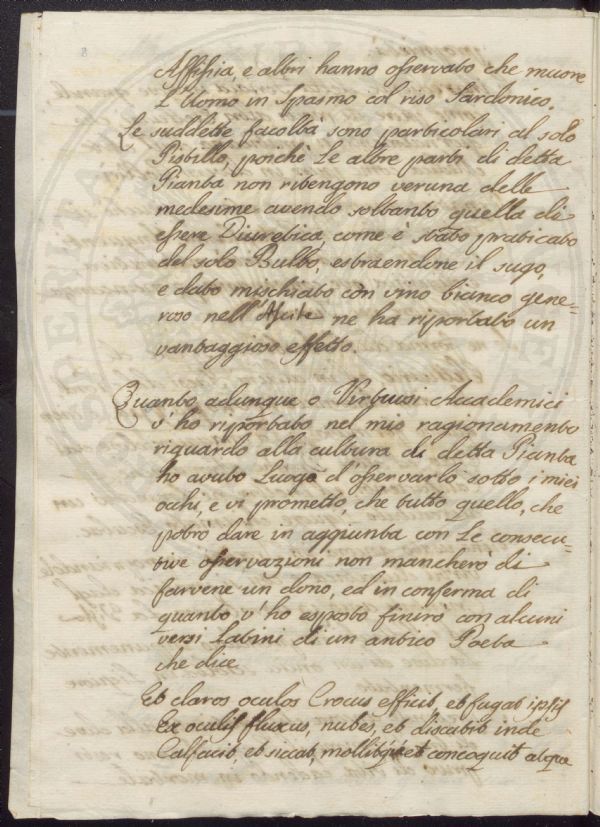 Assissia, e altri hanno osservato che muore
L'Uomo in Spasmo col riso Sardonico.
Le suddette facoltà sono particolari al solo
Pistillo, poichè Le altre parti di detta
Pianta non ritengono veruna delle
medesime avendo soltanto quella di
essere Diuretica, come è stato praticato
del solo Bulbo, estraendone il sugo,
e dato mischiato con vino bianco gene=
roso nell'Ascite ne ha riportato un
vantaggioso effetto.
Quanto adunque o Virtuosi Accademici
v'ho riportato nel mio ragionamento
riguardo alla cultura di detta Pianta
ho avuto Luogo d'osservarlo sotto i miei
occhi, e vi prometto, che tutto quello, che
potrò dare in aggiunta con Le consecu=
tive osservazioni non mancherò di
farvene un dono, ed in conferma di
quanto v'ho esposto finirò con alcuni
versi Latini di un antico Poeta
che dice
Et claros oculos Crocus efficit, et fugat ipsis
Ex oculis fluxus, nubes, et discutit inde
Calfacit, et siccat, mollitque et concoquit atque